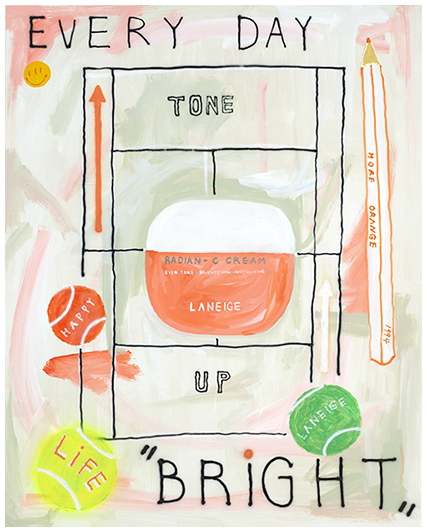 EVERY DAY
TONE
MORE ORANGE
RADIAN-C CREAM
LANEIGE
HAPPY
1994
UP
LANEIGE
LiFE
"BRiGHT"